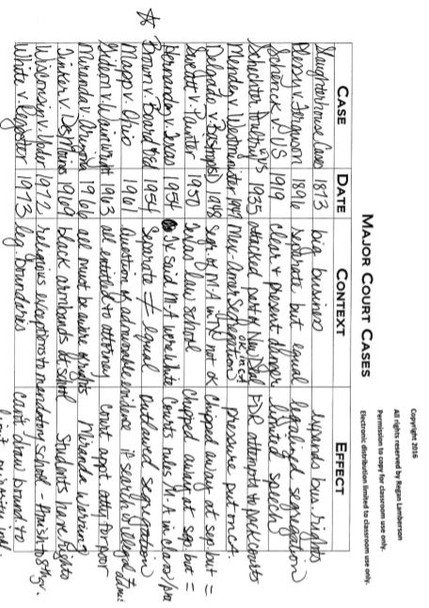 Copyright 2016
All rights reserved by Regan Lamberson
Permission to copy for classroom use only.
Electronic distribution limited to classroom use only.
MAJOR COURT CASES
CASE DATE CONTEXT EFFECT
Slaughterhouse Cases 1873 big business expands bus. rights
Plessy v. Ferguson 1896 separate but equal legalized segregation
Schenck v. US 1919 clear & present danger limited speech
Schechter Poultry v US 1935 attacked part of New Deal FDR attempts to pack courts
Mendez v. Westminister 1947 Mex-Amer Segregation pressure put on CA.
Delgado v. Bastrop ISD 1948 seg. of M.A in TX not ok Chipped away at sep but =
Sweatt v. Painter 1950 Texas law school Chipped away at sep but =
Hernandez v. Texas 1954 TX said M-A were white Courts rules M.A in
Brown v. Board of Ed 1954 Separate ≠ equal outlawed segregation
Mapp v. Ohio 1961 question of admissable evidence if search is illegal
Gideon v. Wainwright 1963 all entitled to attorney Court appt. atty for poor
Miranda v. Arizona 1966 all must be aware of rights Miranda Warning
Tinker v. Des Moines 1969 black armbands at school Students have rights
Wisconsin v. Yoder 1972 religious exceptions to mandatory school - finish to 8th gr.
White v. Regester 1973 leg. boundaries can't draw bound. to